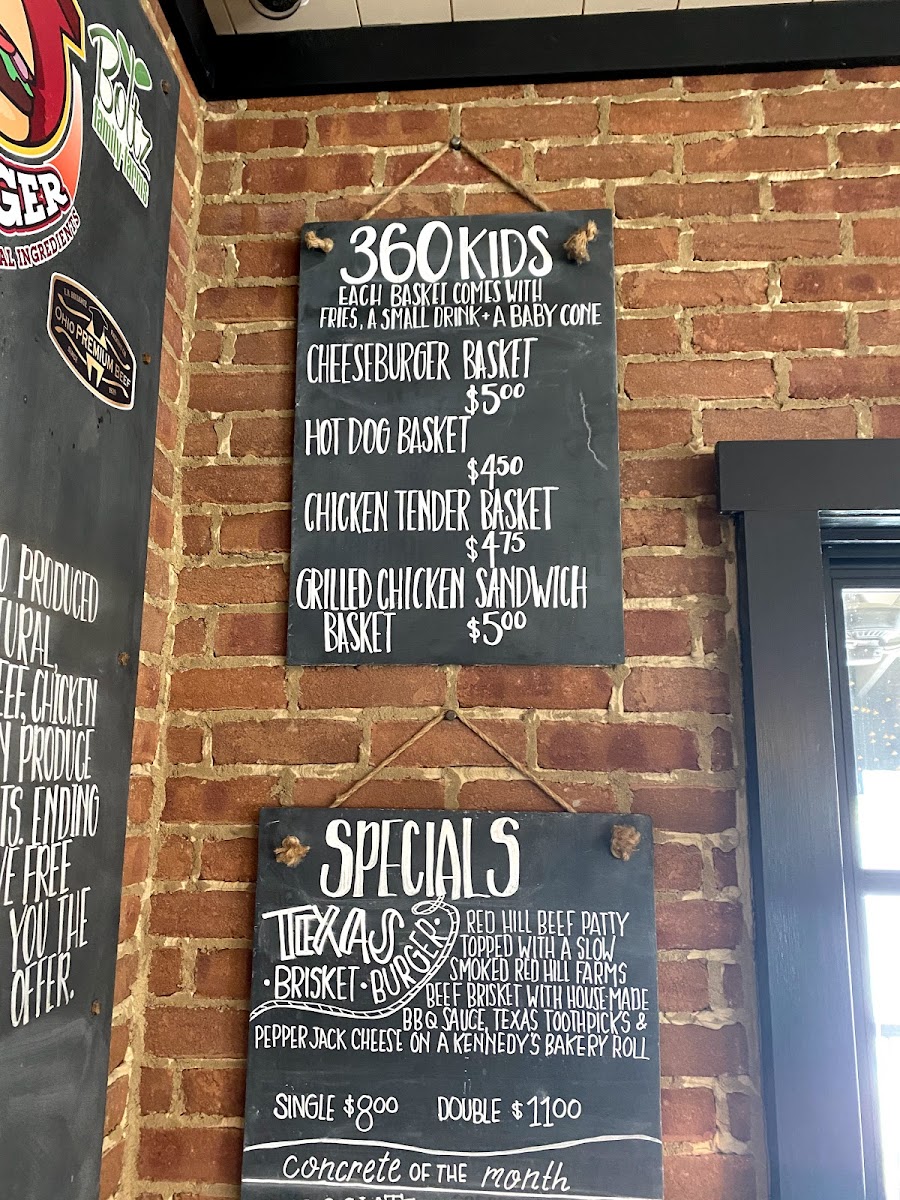 GER
AL INGREDIENTS
Boltz
family farms
Ohio PREMIUM BEEF
PRODUCED
TURAL,
EEF, CHICKEN
PRODUCE
TS. ENDING
VE FREE
YOU THE
OFFER.
360 KIDS
EACH BASKET COMES WITH
FRIES, A SMALL DRINK + A BABY CONE
CHEESEBURGER BASKET
$5.00
HOT DOG BASKET
$4.50
CHICKEN TENDER BASKET
$4.75
GRILLED CHICKEN SANDWICH
BASKET $5.00
SPECIALS
TEXAS
·BRISKET·BURGER·
RED HILL BEEF PATTY
TOPPED WITH A SLOW
SMOKED RED HILL FARMS
BEEF BRISKET WITH HOUSE-MADE
BBQ SAUCE, TEXAS TOOTHPICKS &
PEPPER JACK CHEESE ON A KENNEDY'S BAKERY ROLL
SINGLE $8.00 DOUBLE $11.00
concrete OF THE month